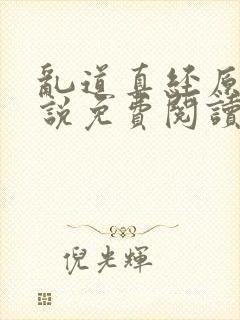 亂道真経原
說免費閱讀
倪光輝